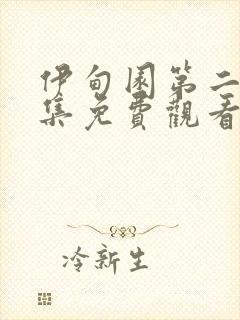 伊甸園第二
集免費觀看
冷新生